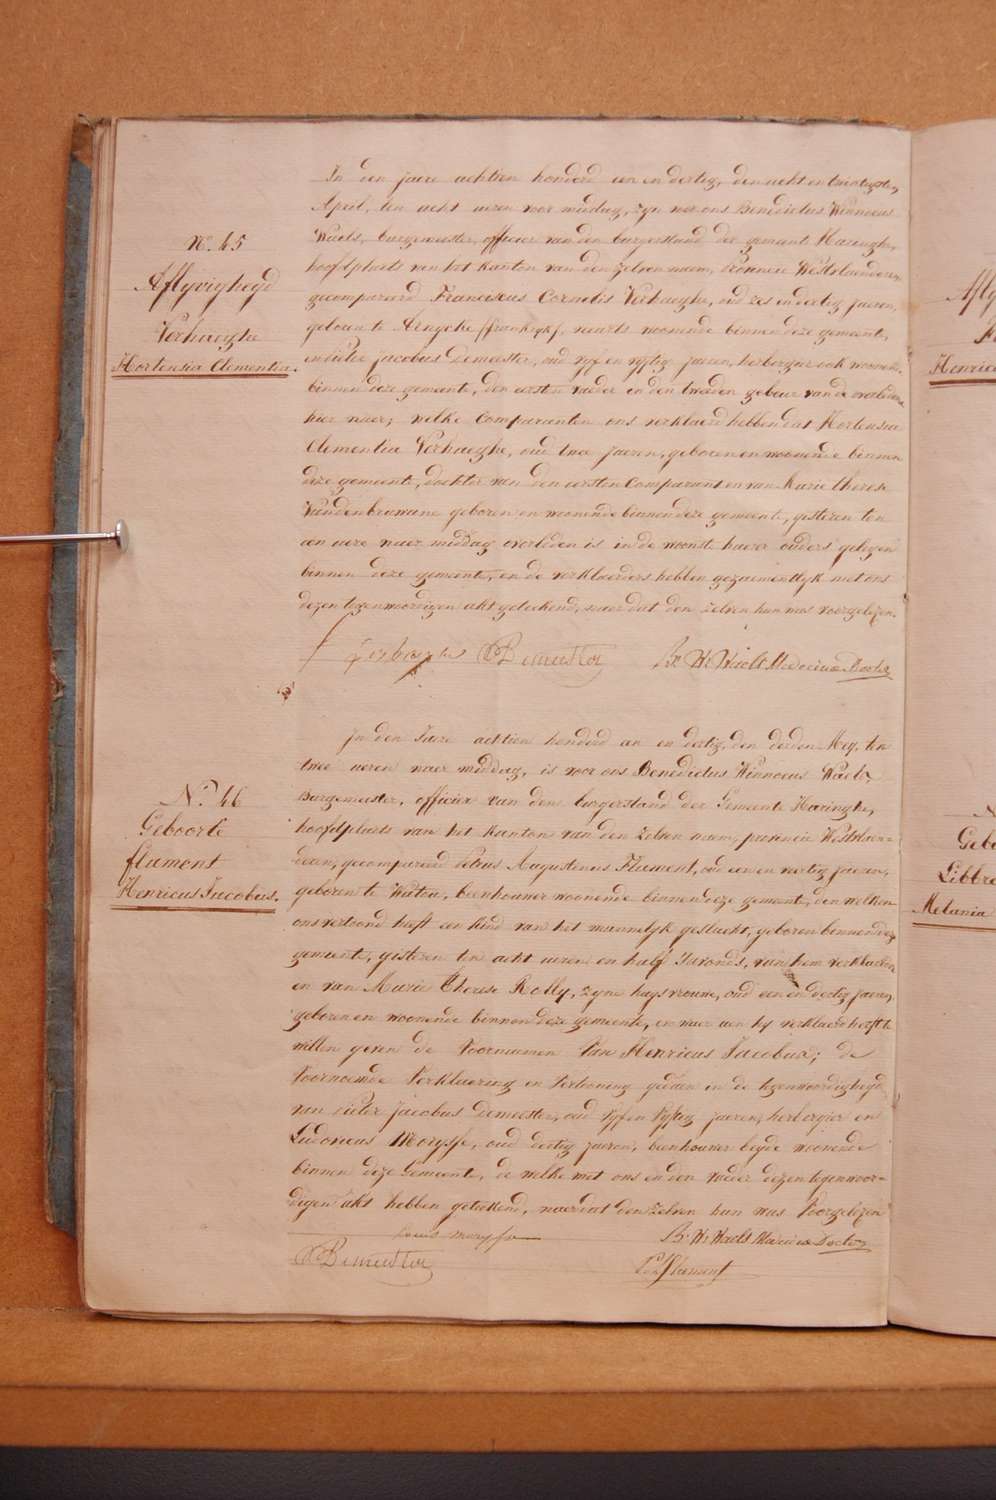 N.º 45
Aflyvigheyd
Verhaeghe
Hortensia Clementia.
In den jaere achtien honderd een en dertig, den acht en twintigsten
April, ten acht ueren voor middag, zyn voor ons Benedictus Winnocus
Waels, burgemeester, officier van den burgerstand der gemeente Haringhe,
hoofdplaets van het kanton van den zelven naem, provincie Westvlaenderen
gecompareerd Franciscus Cornelis Verhaeghe, oud zes en dertig jaeren,
geboren te Arnycke (frankryk), woonende binnen deze gemeente,
en Pieter Jacobus Demeester, oud vyf en vyftig jaeren, herbergier ook woonende
binnen deze gemeente, den eersten vader en den tweeden gebeur van de overledene
hier naer; welke Comparanten ons verklaerd hebben dat Hortensia
Clementia Verhaeghe, oud twee jaeren, geboren en woonende binnen
deze gemeente, dochter van den eersten Comparant en van Marie Therese
Vandenbrawane geboren en woonende binnen deze gemeente, gisteren ten
een uere naer middag overleden is in de woonste haerer ouders gelegen
binnen deze gemeente, en de verklaerders hebben gezaementlyk met ons
dezen tegenwoordigen akt geteekend, naer dat den zelven hun was voorgelezen.
PJ Demeester B. W. Waels Medecinæ Doctor
N.º 46
Geboorte
flament
Henricus Jacobus.
In den Jaere achtien honderd een en dertig, den derden Mey, ten
twee ueren naer middag, is voor ons Benedictus Winnocus Waels
Burgemeester, officier van den burgerstand der Gemeente Haringhe,
hoofdplaets van het Kanton van den zelven naem, provincie Westvlaen-
deren, gecompareerd Petrus Augustinus Flament, oud een en veertig jaeren,
geboren te Watou, beenhouwer woonende binnen deze gemeente, den welken
ons vertoond heeft een kind van het mannelyk geslacht, geboren binnen deze
gemeente, gisteren ten acht ueren en half s'avonds, van hem verklaerder
en van Marie Therese Rolly, zyne huysvrouw, oud een en dertig jaeren,
geboren en woonende binnen deze gemeente, en waer aen hy verklaerd heeft te
willen geven de Voornamen Van Henricus Jacobus; de
Voornoemde Verklaering en Vertooning gedaen in de tegenwoordigheyd
van Pieter Jacobus Demeester, oud vyf en Vyftig jaeren, herbergier en
Ludovicus Morysse, oud dertig jaeren, beenhouwer beyde woonende
binnen deze Gemeente, de welke met ons en den vader dezen tegenwoor-
digen akt hebben geteekend, naer dat den zelven hun was Voorgelezen
Louis morysse B. W. Waels Medecinæ Doctor
PJ Demeester P. A. flament
Henricus
Libbre
Melania